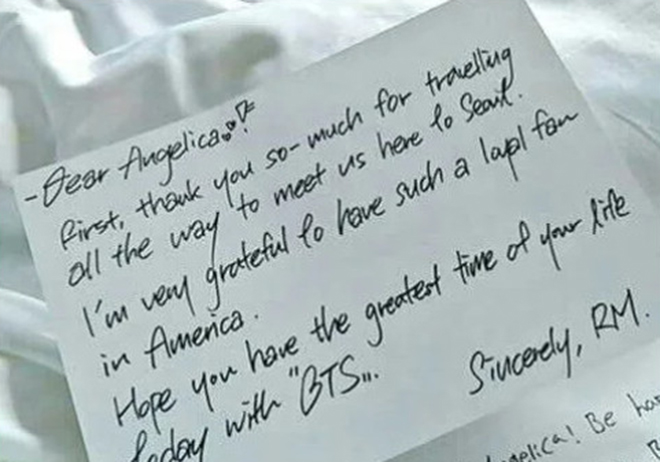 -Dear Angelica
First, thank you so-much for travelling
all the way to meet us here to Seoul.
I'm very grateful to have such a loyal fan
in America.
Hope you have the greatest time of your life
today with "BTS...
Sincerely, RM.
Angelica! Be